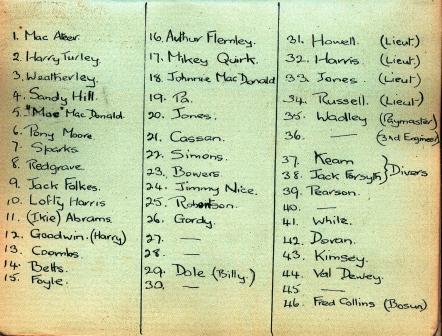 1. Mac Ateer.
2. Harry Turley.
3. Weatherley.
4. Sandy Hill.
5. "Mac" Mac Donald.
6. Pony Moore.
7. Sparks
8. Redgrave
9. Jack Folkes.
10. Lofty Harris
11. (Ikie) Abrams.
12. Goodwin. (Harry)
13. Coombs.
14. Betts.
15. Foyle.
16. Authur Flemley.
17. Mikey Quirk.
18. Johnnie MacDonald
19. Pa.
20. Jones.
21. Cassan.
22. Simons.
23. Bowers.
24. Jimmy Nice.
25. Robertson.
26. Gordy.
27. —
28. —
29. Dole (Billy.)
30. —
31. Howell. (Lieut)
32. Harris. (Lieut)
33. Jones. (Lieut)
34. Russell. (Lieut)
35. Wadley (Paymaster)
36. — (3rd Engineer)
37. Keam
38. Jack Forsyth } Divers
39. Pearson.
40. —
41. White.
42. Dovan.
43. Kimsey.
44. Val Dewey.
45. —
46. Fred Collins (Bosun)